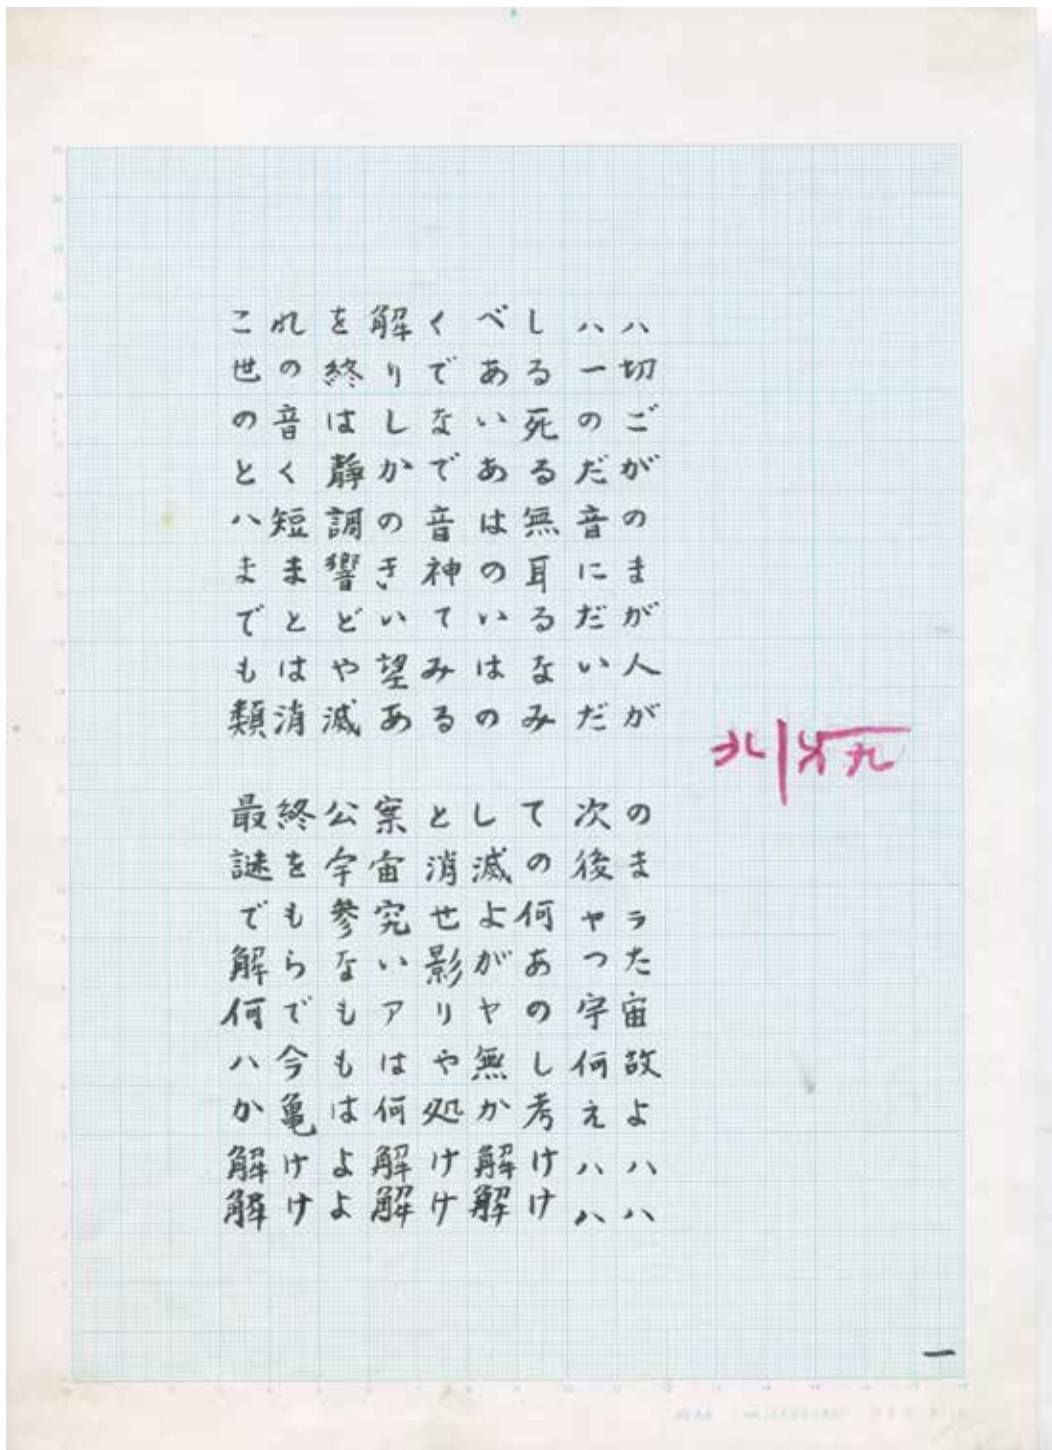 これを解くべしハハ
世の終りである一切
の音はしない死のご
とく静かであるだが
ハ短調の音は無音の
まま響き神の耳にま
でとどいているだが
もはや望みはない人
類消滅あるのみだが
最終公案として次の
謎を宇宙消滅の後ま
でも参究せよ何ヤラ
解らない影があつた
何でもアリヤの宇宙
ハ今もはや無し何故
か亀は何処か考えよ
解けよ解け解けハハ
解けよ解け解けハハ
一